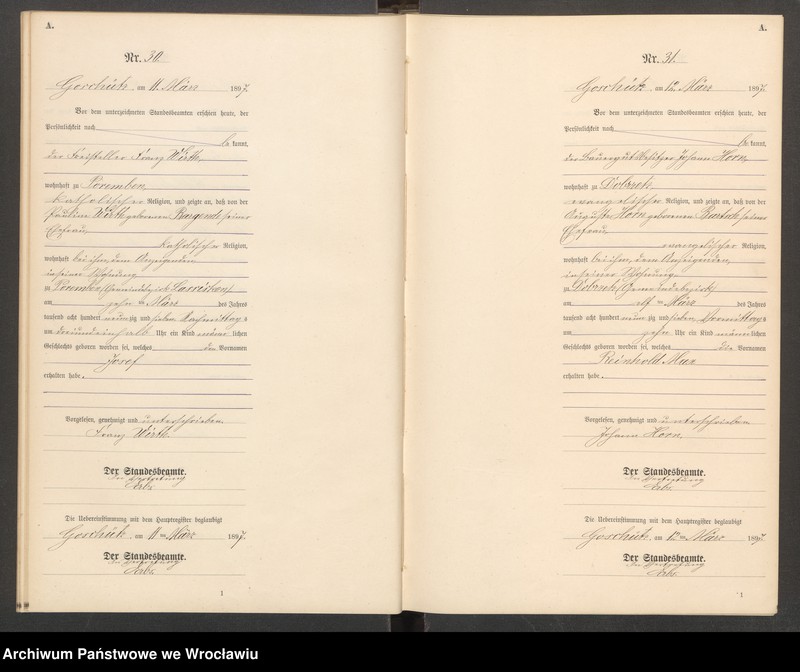 A.
Nr. 30.
Goschütz, am 11. März 1897.
Vor dem unterzeichneten Standesbeamten erschien heute, der
Persönlichkeit nach
be kannt,
der Freisteller Franz Wirth,
wohnhaft zu Poremben,
katholischer Religion, und zeigte an, daß von der
Pauline Wirth geborenen seiner
Ehefrau,
katholischer Religion,
wohnhaft bei ihm, dem Anzeigenden
in seiner Wohnung
zu Poremben (Gemeindebezirk
am zehn ten März des Jahres
tausend acht hundert neunzig und sieben Nachmittag s
um dreiundeinhalb Uhr ein Kind männ lichen
Geschlechts geboren worden sei, welches den Vornamen
Josef
erhalten habe.
Vorgelesen, genehmigt und unterschrieben
Franz Wirth.
Der Standesbeamte.
In Vertretung
Die Uebereinstimmung mit dem Hauptregister beglaubigt
Goschütz, am 11 ten März 1897.
Der Standesbeamte.
In Vertretung
1
A.
Nr. 31.
Goschütz, am 12. März 1897.
Vor dem unterzeichneten Standesbeamten erschien heute, der
Persönlichkeit nach
be kannt,
der Bauergutsbesitzer Johann Horn,
wohnhaft zu Dobrzetz,
evangelischer Religion, und zeigte an, daß von der
Auguste Horn geborenen seiner
Ehefrau,
evangelischer Religion,
wohnhaft bei ihm, dem Anzeigenden,
in seiner Wohnung
zu Dobrzetz (Gemeindebezirk)
am elf ten März des Jahres
tausend acht hundert neunzig und sieben Vormittag s
um zehn Uhr ein Kind männ lichen
Geschlechts geboren worden sei, welches die Vornamen
Reinhold Max
erhalten habe.
Vorgelesen, genehmigt und unterschrieben
Johann Horn.
Der Standesbeamte.
In Vertretung
Die Uebereinstimmung mit dem Hauptregister beglaubigt
Goschütz, am 12 ten März 1897.
Der Standesbeamte.
In Vertretung
1
Archiwum Państwowe we Wrocławiu